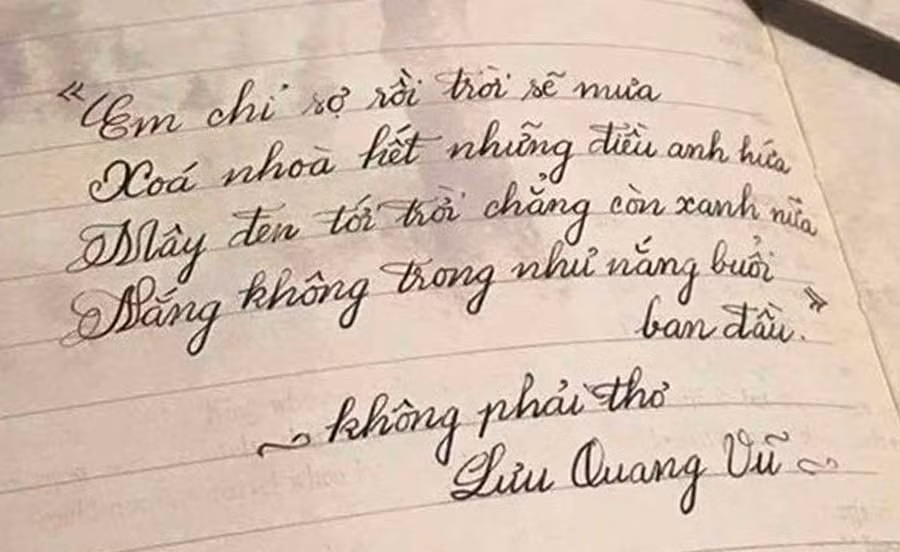 "Em chỉ sợ rồi trời sẽ mưa
Xoá nhoà hết những điều anh hứa
Mây đen tới trời chẳng còn xanh nữa
Nắng không trong như nắng buổi
ban đầu."
~ không phải thơ
Lưu Quang Vũ ~